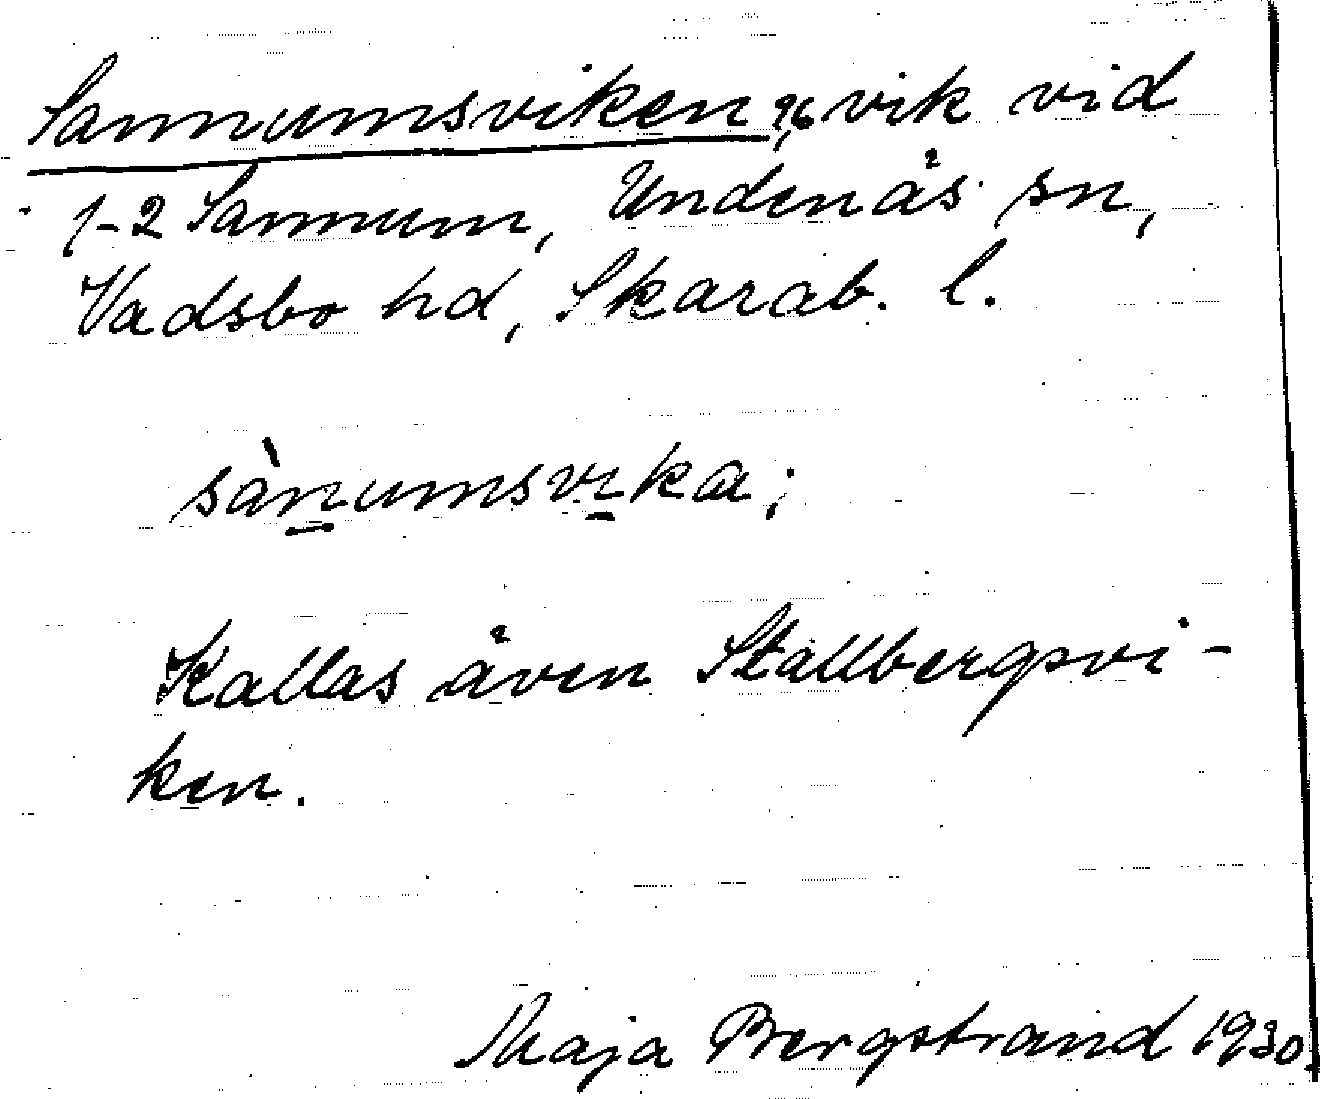 Sannumsviken, 96 vik vid
1-2 Sannum, Undenäs sn,
Vadsbo hd, Skarab. l.
sànumsvika;
Kallas även Stallbergsvi-
ken.
Maja Bergstrand 1930